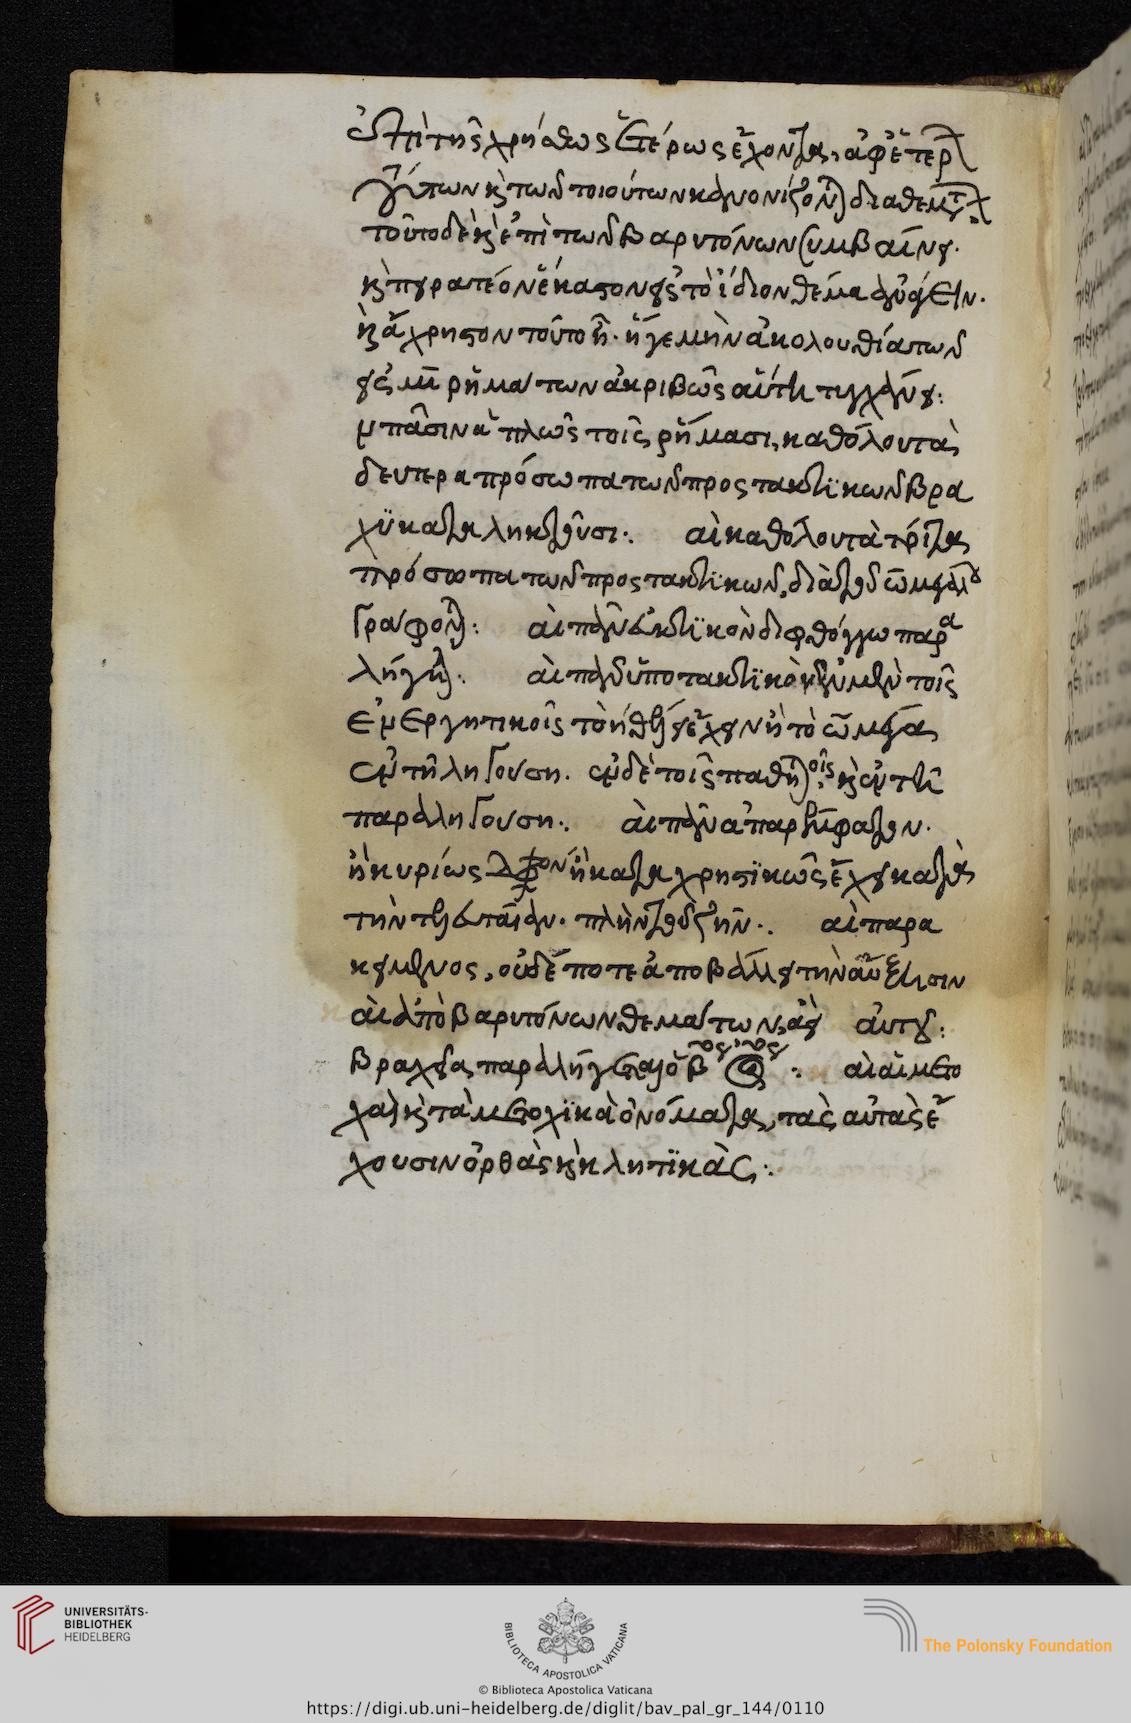 ἐπὶ τῆς χρήσεως ἑτέρως ἔχοντα, ἀφ' ἑτέρ
τύπων κ τῶν τοιούτων κανονίζον διαθεμτ
τοῦτο δὲ κ ἐπὶ τῶν βαρυτόνων συμβαίνει.
κ πειρατέον ἕκαστον εἰς τὸ ἴδιον θέμα ἀνάγειν.
κἂν ἄχρηστον τοῦτο ῇ. ἥ γε μὴν ἀκολουθία τῶν
εἰς μι ῥημάτων ἀκριβῶς αὕτη τυγχάνει:
πᾶσιν ἁπλῶς τοῖς ῥήμασι, καθόλου τὰ
δεύτερα πρόσωπα τῶν προστακτϊκῶν βρα
χϋκαταληκτεῦσι:. αἰ καθόλου τὰ τρίτα
πρόσωπα τῶν προστακτϊκῶν, διὰ τοῦ ω μεγάλου
γράφον: αἰ πᾶν εὐκτϊκὸν διφθόγγω παρα
λήγε. αἰ πᾶν ὑποτακτϊκὸν ἐν μὲν τοῖς
ἐνεργητικοῖς τὸ η θέλει ἔχειν ἢ τὸ ω μέγα
ἐν τῆ ληγούση. ἐν δὲ τοῖς παθητοῖς, κ ἐν τῆ
παραληγούση:. αἰ πᾶν ἀπαρέμφατον.
ἢ κυρίως ἢ καταχρηστϊκῶς ἔχει κατὰ
τὴν ἔκτασιν. πλὴν τοῦ ζῆν:. αἰ παρα
κείμενος, οὐδέποτε ἀποβάλλει τὴν αὔξησιν
αἰ ἀπὸ βαρυτόνων θεμάτων, ἀεὶ αὐτοῦ:
βραχεία παραλήγεται ὁ β :. αἰ αἱ μετο
χαὶ κ τὰ μετοχϊκὰ ὀνόματα, τὰς αὐτὰς ἔ
χουσιν ὀρθὰς κ κλητϊκάς:.
UNIVERSITÄTS-
BIBLIOTHEK
HEIDELBERG
BIBLIOTECA APOSTOLICA VATICANA
The Polonsky Foundation
© Biblioteca Apostolica Vaticana
https://digi.ub.uni-heidelberg.de/diglit/bav_pal_gr_144/0110